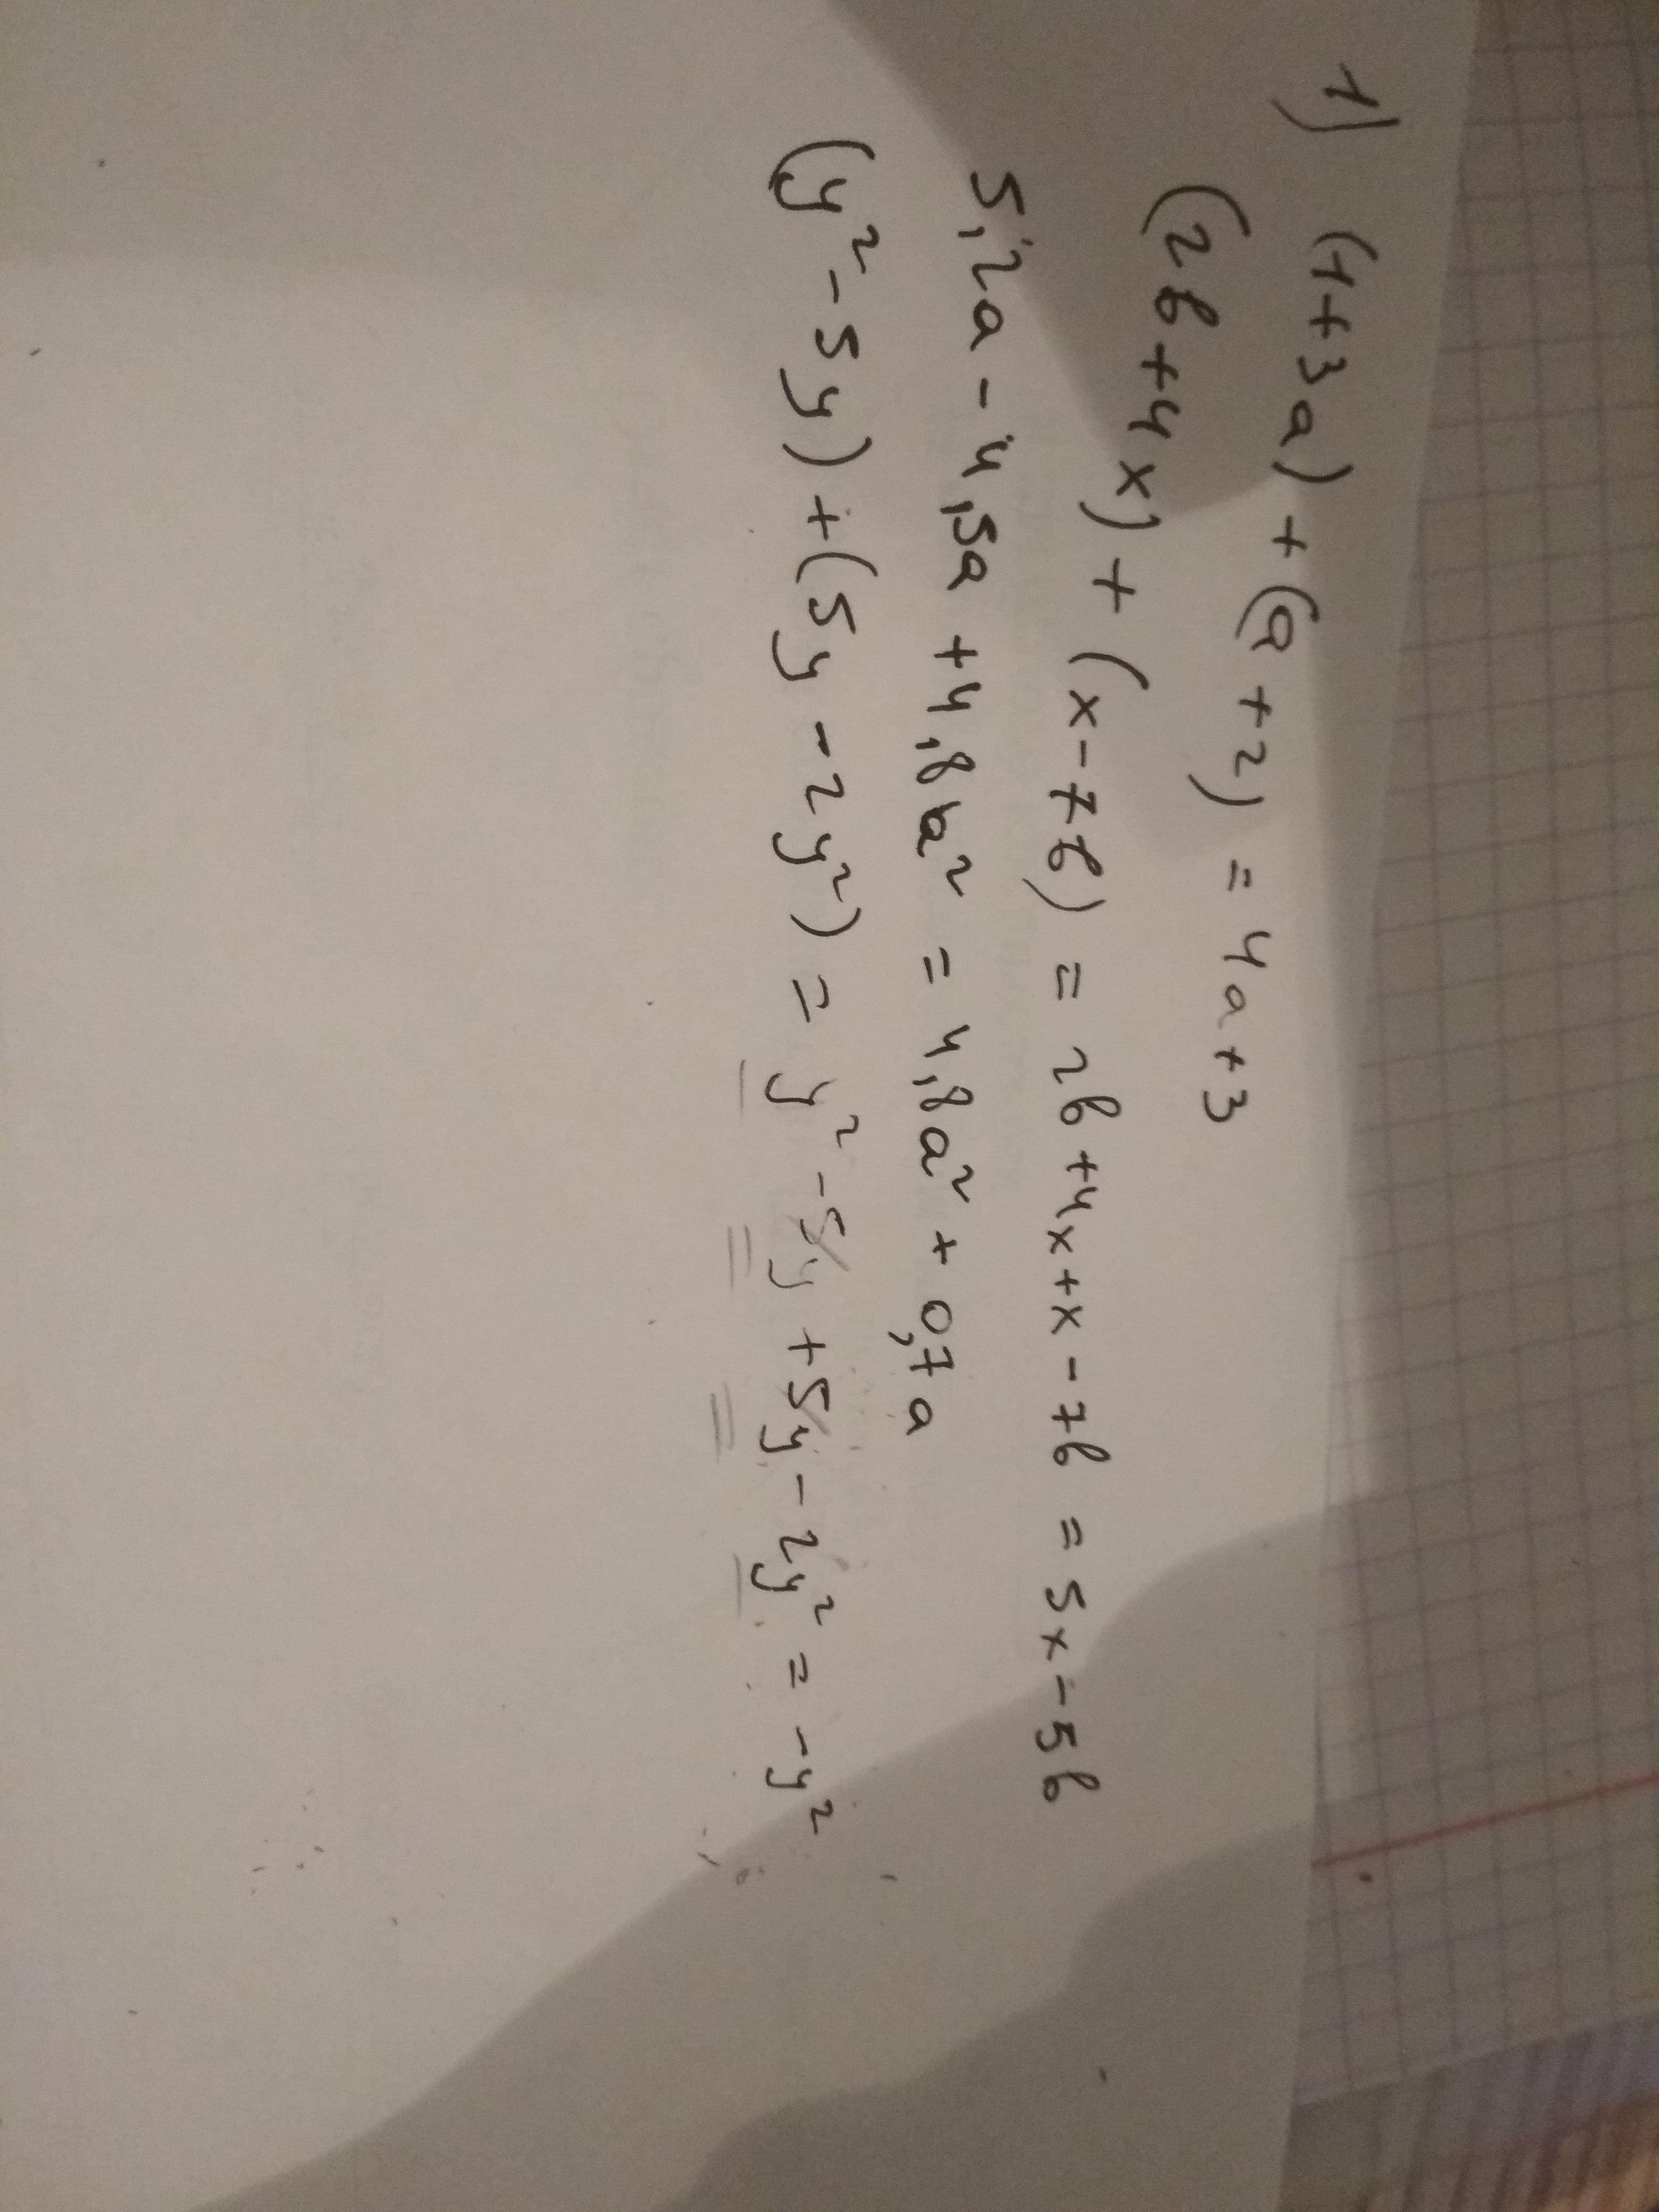 1) (1+3a)+(a+2) = 4a+3
(2b+4x)+(x-7b) = 2b+4x+x-7b = 5x-5b
5,2a-4,5a+4,8a² = 4,8a²+0,7a
(y²-5y)+(5y-2y²) = y²-5y+5y-2y² = -y²